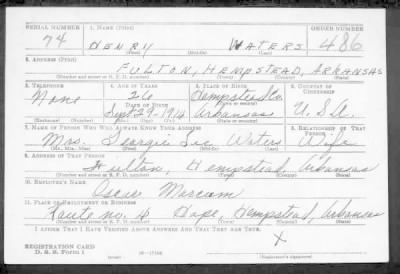 SERIAL NUMBER 1. NAME (Print) ORDER NUMBER
74 HENRY WATERS 486
(First) (Middle) (Last)
2. ADDRESS (Print)
FULTON, HEMPSTEAD, ARKANSAS
(Number and street or R. F. D. number) (Town) (County) (State)
3. TELEPHONE 4. AGE IN YEARS 5. PLACE OF BIRTH 6. COUNTRY OF CITIZENSHIP
None 26 Hempstead Co.
DATE OF BIRTH
29-1914 Arkansas U.S.A.
(Exchange) (Number) (Mo.) (Day) (Yr.) (State or country)
7. NAME OF PERSON WHO WILL ALWAYS KNOW YOUR ADDRESS 8. RELATIONSHIP OF THAT PERSON
Mrs. Georgie Waters Wife
(Mr., Mrs., Miss) (First) (Middle) (Last)
9. ADDRESS OF THAT PERSON
Fulton Hempstead, Arkansas
(Number and street or R. F. D. number) (Town) (County) (State)
10. EMPLOYER'S NAME
Oscar
11. PLACE OF EMPLOYMENT OR BUSINESS
Route no. 4 Hope, Hempstead, Arkansas
(Number and street or R. F. D. number) (Town) (County) (State)
I AFFIRM THAT I HAVE VERIFIED ABOVE ANSWERS AND THAT THEY ARE TRUE.
X
REGISTRATION CARD
D. S. S. Form 1 (Registrant's signature)